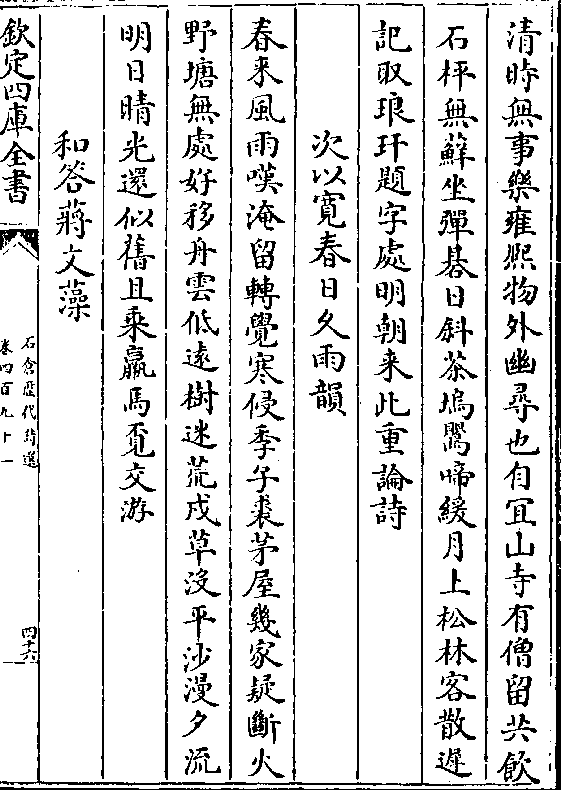 清時無事樂雍熙物外幽尋也自宜山寺有僧留共飲
石枰無蘚坐彈棊日斜茶塢鸎啼緩月上松林客散遲
記取琅玕題字處明朝来此重論詩
次以寛春日久雨韻
春来風雨嘆淹留轉覺寒侵季子裘茅屋幾家疑斷火
野塘無處好移舟雲低遠樹迷荒戍草沒平沙漫夕流
明日晴光還似舊且乘羸馬覓交游
和答蔣文藻
欽定四庫全書
石倉歴代詩選
卷四百九十一
四十六